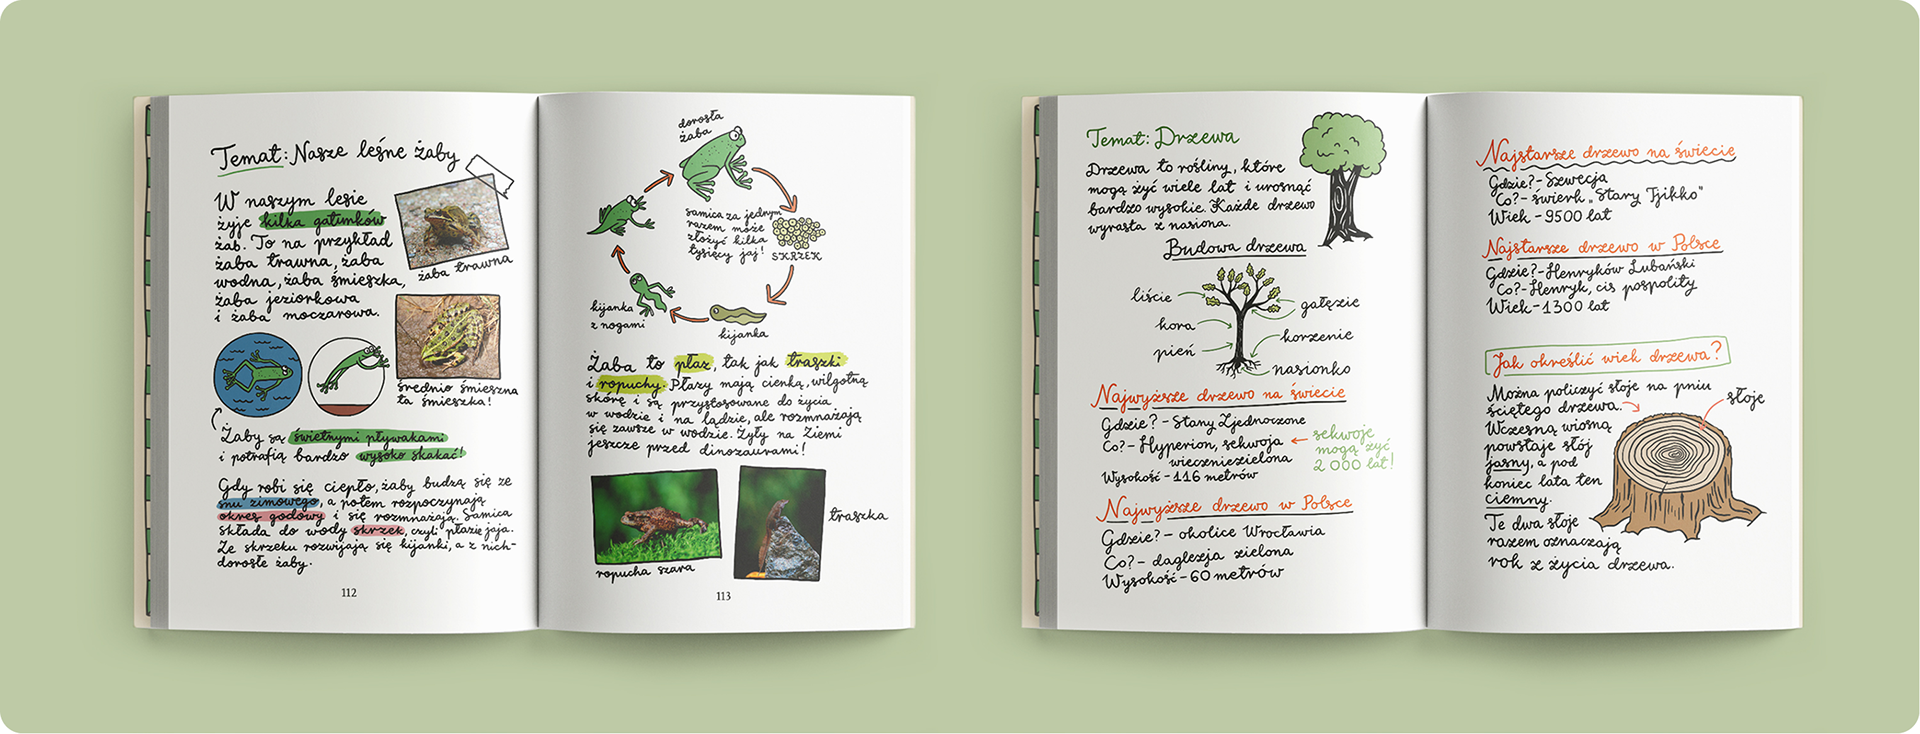 Temat: Nasze leśne żaby
W naszym lesie
żyje kilka gatunków
żab. To na przykład
żaba trawna, żaba
wodna, żaba śmieszka,
żaba jeziorkowa
i żaba moczarowa.
żaba trawna
średnio śmieszna
ta śmieszka!
Żaby są świetnymi pływakami
i potrafią bardzo wysoko skakać!
Gdy robi się ciepło, żaby budzą się ze
snu zimowego, a potem rozpoczynają
okres godowy i się rozmnażają. Samica
składa do wody skrzek, czyli płazie jaja.
Ze skrzeku rozwijają się kijanki, a z nich-
dorosłe żaby.
112
dorosła
żaba
samica za jednym
razem może
złożyć kilka
tysięcy jaj!
SKRZEK
kijanka
z nogami
kijanka
Żaba to płaz, tak jak traszki
i ropuchy. Płazy mają cienką, wilgotną
skórę i są przystosowane do życia
w wodzie i na lądzie, ale rozmnażają
się zawsze w wodzie. Żyły na Ziemi
jeszcze przed dinozaurami!
ropucha szara
traszka
113
Temat: Drzewa
Drzewa to rośliny, które
mogą żyć wiele lat i urosnąć
bardzo wysokie. Każde drzewo
wyrasta z nasiona.
Budowa drzewa
liście
gałęzie
kora
korzenie
pień
nasionko
Najwyższe drzewo na świecie
Gdzie? - Stany Zjednoczone
Co? - Hyperion, sekwoja
wieczniezielona
Wysokość - 116 metrów
sekwoje
mogą żyć
2 000 lat!
Najwyższe drzewo w Polsce
Gdzie? - okolice Wrocławia
Co? - daglezja zielona
Wysokość - 60 metrów
Najstarsze drzewo na świecie
Gdzie? - Szwecja
Co? - świerk „Stary Tjikko"
Wiek - 9500 lat
Najstarsze drzewo w Polsce
Gdzie? - Henryków Lubański
Co? - Henryk, cis pospolity
Wiek - 1300 lat
Jak określić wiek drzewa?
Można policzyć słoje na pniu
ściętego drzewa.
słoje
Wczesną wiosną
powstaje słój
jasny, a pod
koniec lata ten
ciemny.
Te dwa słoje
razem oznaczają
rok z życia drzewa.